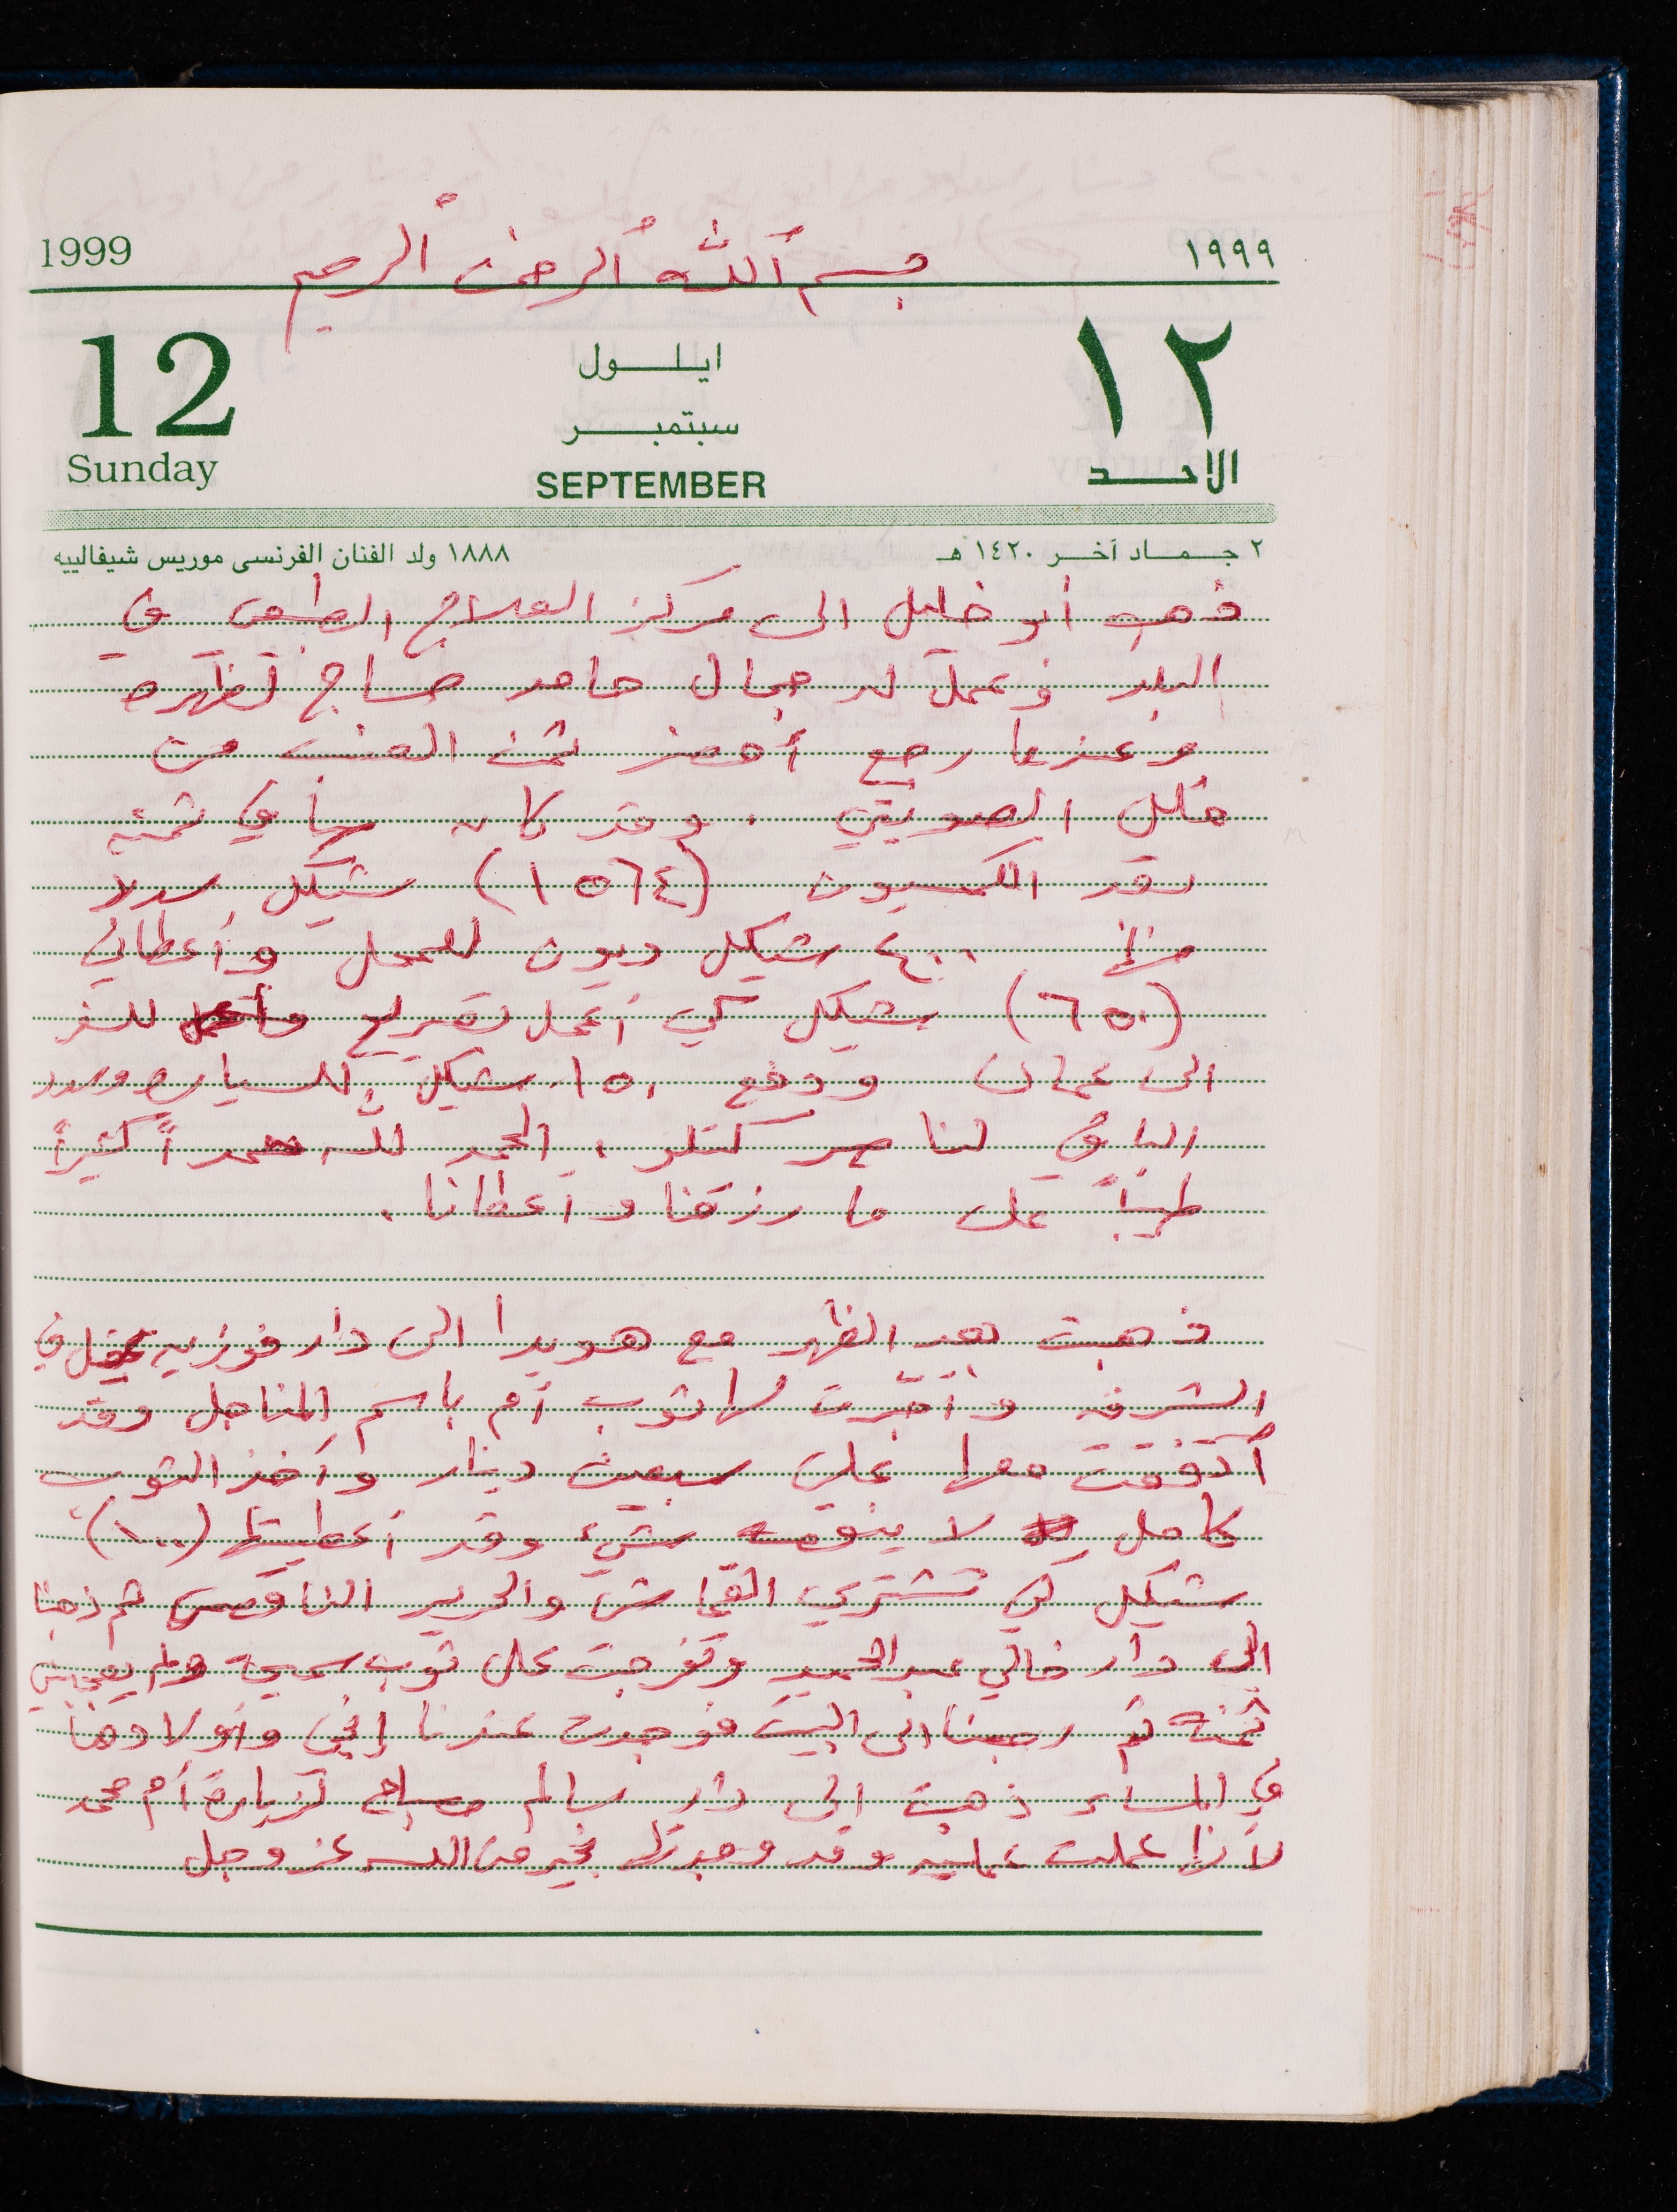 1999 بسم الله الرحمن الرحيم ١٩٩٩
12 ايلول ١٢
سبتمبر
Sunday SEPTEMBER الاحد
٢ جماد آخر ١٤٢٠ هـ ١٨٨٨ ولد الفنان الفرنسى موريس شيفالييه
ذهب أبو خليل الى مركز العلاج الطبيعي في
البلد وعمل له جمال حامد مساج لظهره
وعندما رجع أحضر ثمن العنب من
خليل الصويتي . وقد كان صافي ثمنه
بعد الكمسيون (١٥٦٤) شيكل سدد
منها ٤٠٠ شيكل ديون للمحل وأعطاني
(٦٥٠) شيكل كي أعمل تصريح للسفر
الى عمان ودفع ١٥٠ شيكل للسياره وسدد
الباقي لنا . الحمد لله حمداً كثيراً
طيباً على ما رزقنا وأعطانا .
ذهبت بعد الظهر مع هويدا الى دار فوزيه في
الشرفه و لها ثوب أم باسم المناجل وقد
أتفقت معها على سبعين دينار وآخذ الثوب
كامل لا ينقصه شيء وقد أعطيتها (١٠٠)
شيكل كي تشتري القماش والحرير الناقص ثم ذهبنا
الى دار خالي عبدالحميد وتفرجت على ثوب سميحة ولم يعجبني
ثمنه ثم رجعنا الى البيت فوجدت عندنا إبنتي وأولادها
في المساء ذهبت الى دار سالم مصباح لزيارة أم محمد
لأنها عملت عمليه وقد وجدتها بخير من الله عز وجل